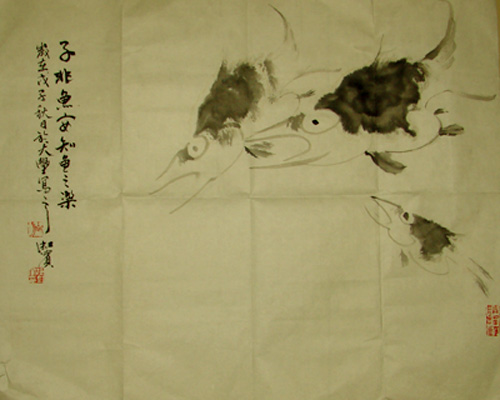 子非魚安知魚之樂
歲在戊子秋日於大豐寫之